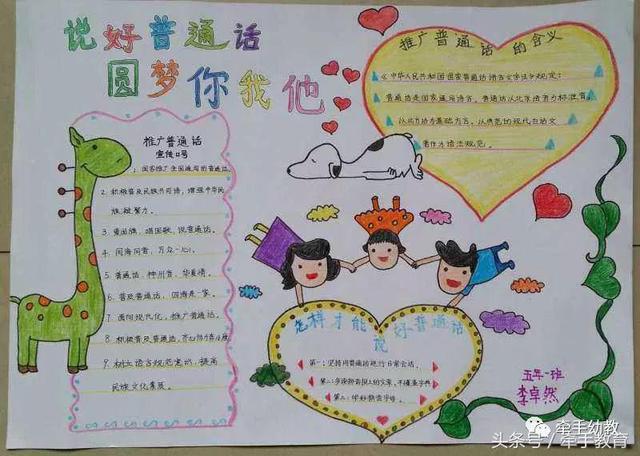 说好普通话
圆梦你我他
推广普通话的含义
《中华人民共和国国家普通话语言文字法》规定：
普通话是国家通用语言，普通话以北京语音为标准音，
以北方话为基础方言，以典范的现代白话文
著作为语法规范。
推广普通话
宣传口号
1. 国家推广全国通用的普通话。
2. 积极普及民族共同语，增强中华民
族凝聚力。
3. 爱国旗，唱国歌，说普通话。
4. 同海同音，万众一心。
5. 普通话，神州音，华夏情。
6. 普及普通话，四海是一家。
7. 面向现代化，推广普通话。
8. 积极普及普通话，齐心协力
9. 树立语言规范意识，提高
民族文化素质。
怎样才能说好普通话
第一：坚持用普通话进行日常会话。
第二：多读拼音报上的文章，不懂查字典
第三：学好拼音字母。
五年一班
李卓然
牵手幼教
头条号 / 牵手教育